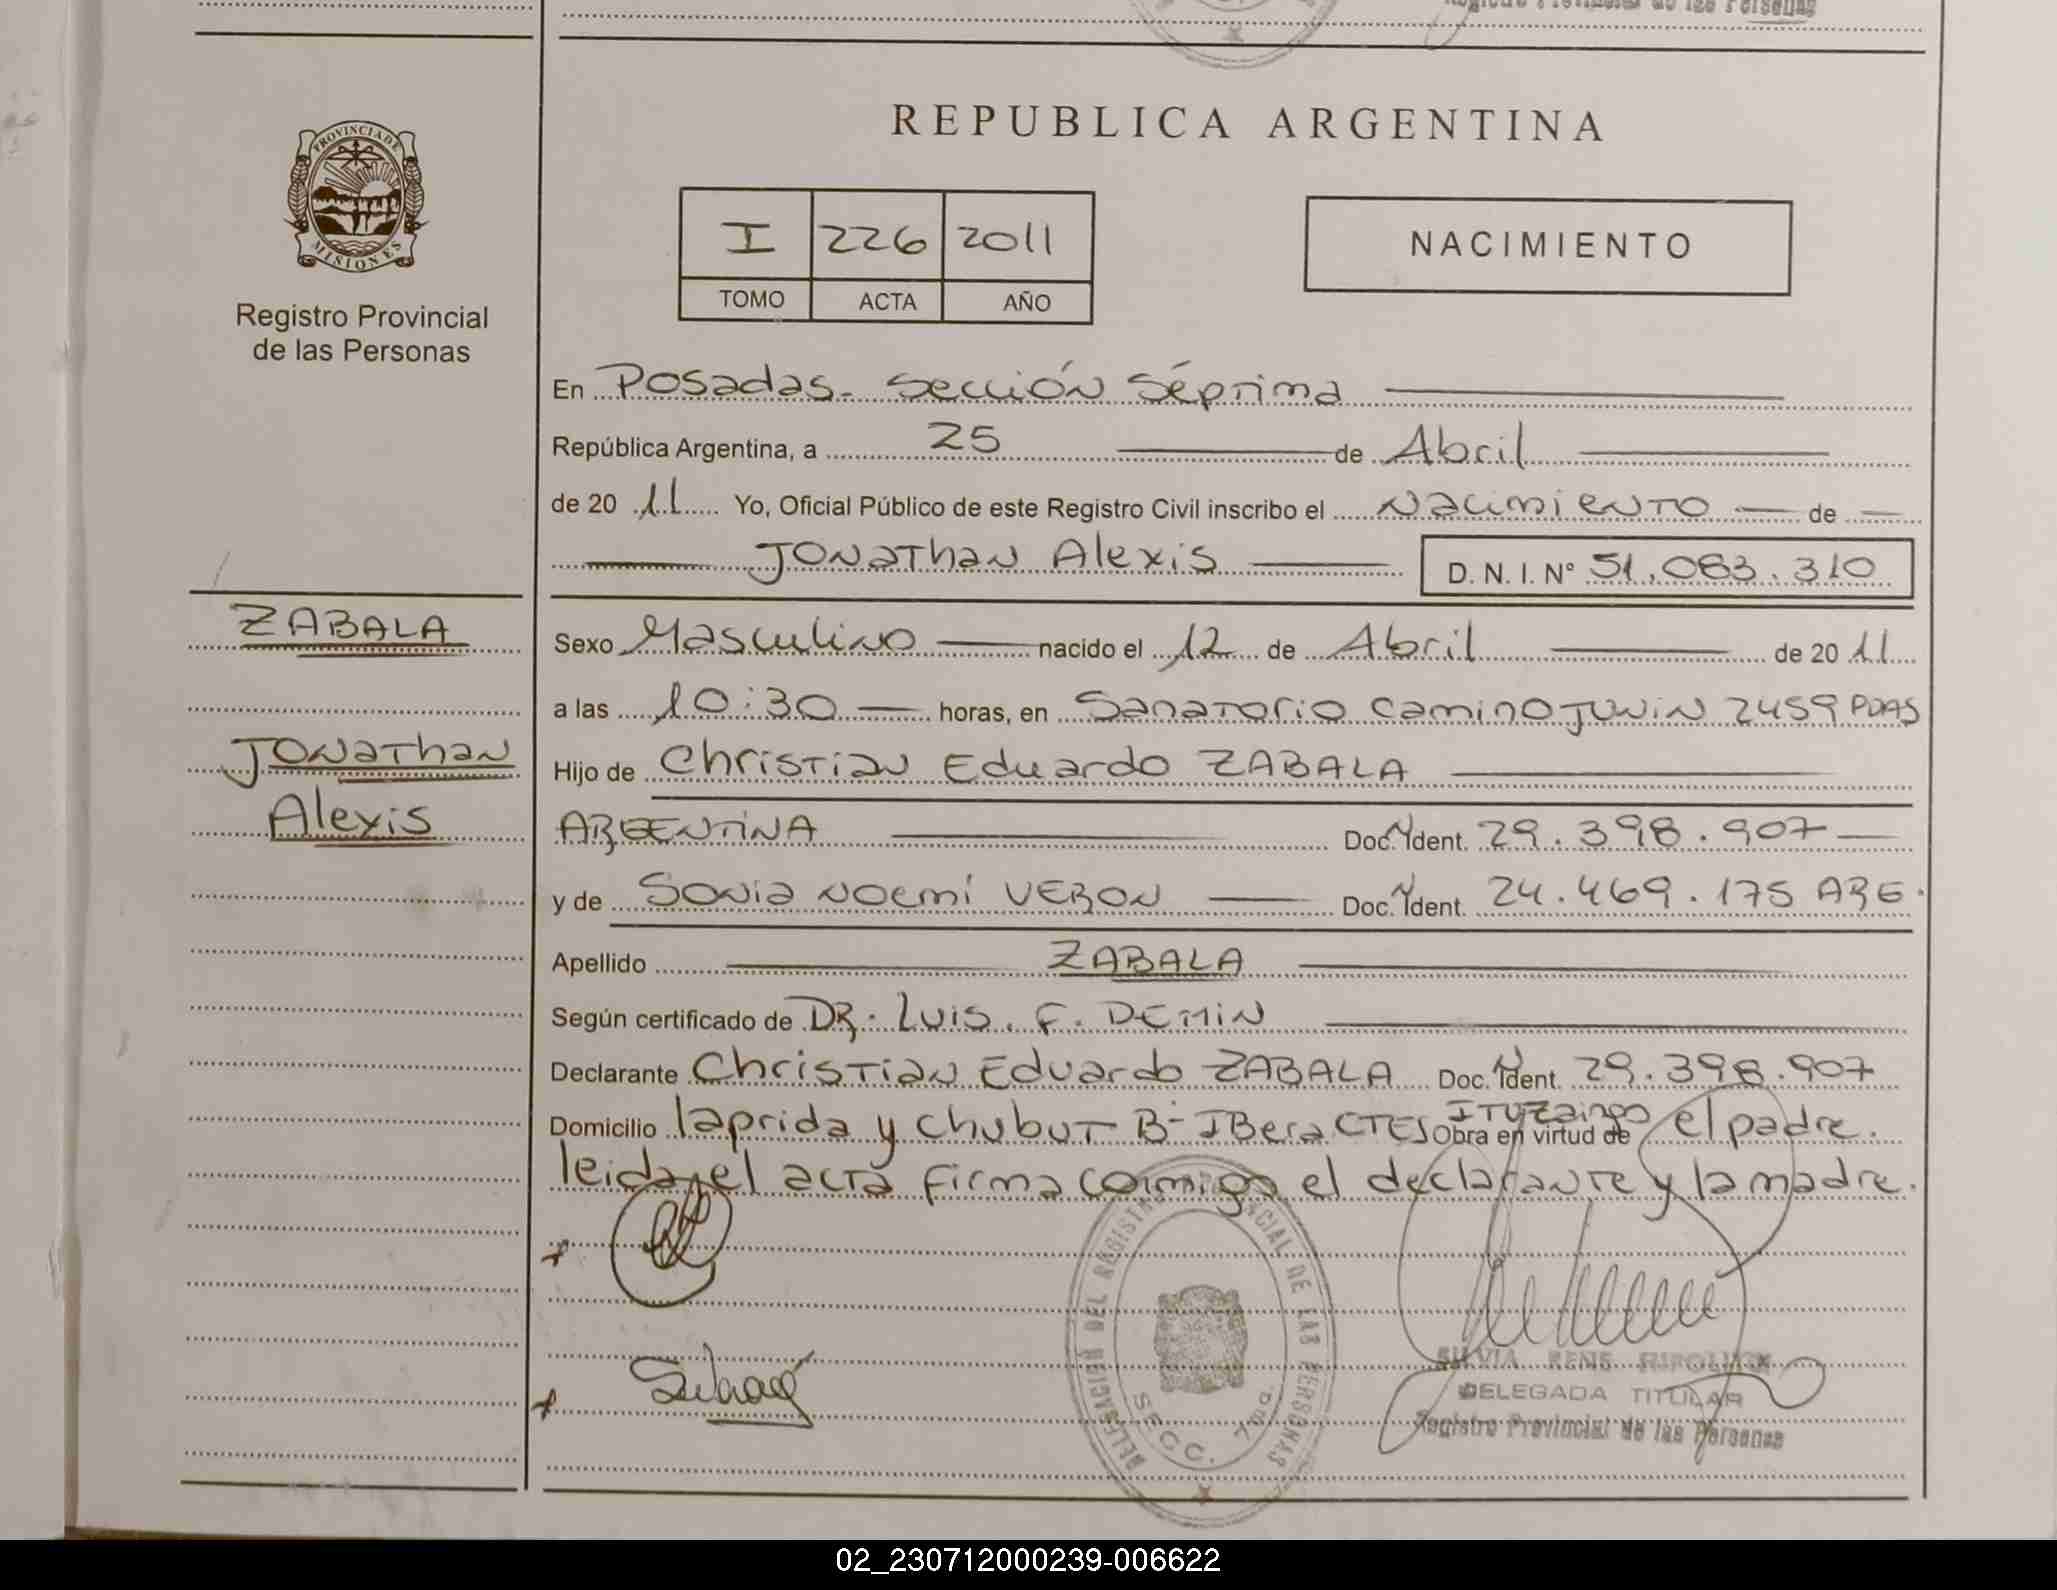 Registro Provincial de las Personas
REPUBLICA ARGENTINA
PROVINCIA DE
MISIONES
Registro Provincial
de las Personas
I 226 2011
TOMO ACTA AÑO
NACIMIENTO
En Posadas - Sección Séptima
República Argentina, a 25 de Abril
de 2011 Yo, Oficial Público de este Registro Civil inscribo el Nacimiento de
Jonathan Alexis D. N. I. N° 51.083.310
ZABALA
Jonathan
Alexis
Sexo Masculino nacido el 12 de Abril de 2011
a las 10:30 horas, en Sanatorio Camino Junin 2459 PDAS
Hijo de Christian Eduardo ZABALA
ARGENTINA Doc. Ident. 29.398.907
y de Sonia Noemí VERON Doc. Ident. 24.469.175 ARG.
Apellido ZABALA
Según certificado de DR. Luis. F. DEMIN
Declarante Christian Eduardo ZABALA Doc. Ident. 29.398.907
Domicilio laprida y chubut B- IBera CTES Ituzaingo Obra en virtud de el padre.
leida el acta firma conmigo el declarante y la madre.
DELEGACION DEL REGISTRO PROVINCIAL DE LAS PERSONAS
SECC. 7ma.
SILVIA RENE
DELEGADA TITULAR
Registro Provincial de las Personas
02_230712000239-006622